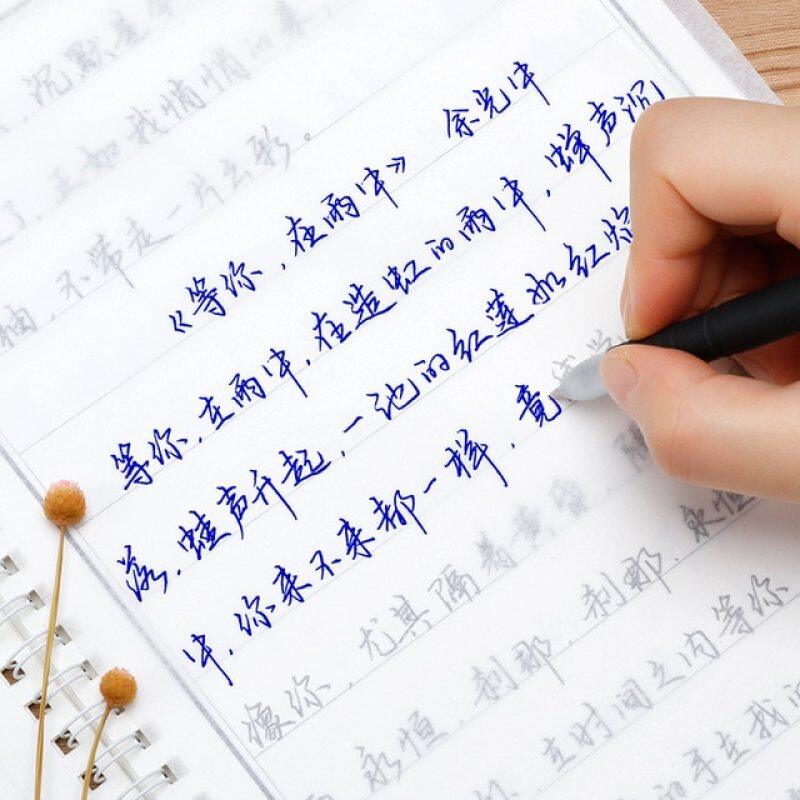 ，沉默是
了，正如我悄悄的来
袖，不带走一片云彩。
《等你，在雨中》 余光中
等你，在雨中，在造虹的雨中，蝉声沉
落，蛙声升起，一池的红莲如红焰
中，你来不来都一样，竟
像你，尤其隔着黄昏，隔
永恒，刹那，刹那，永恒
在时间之内等你
的手在我的